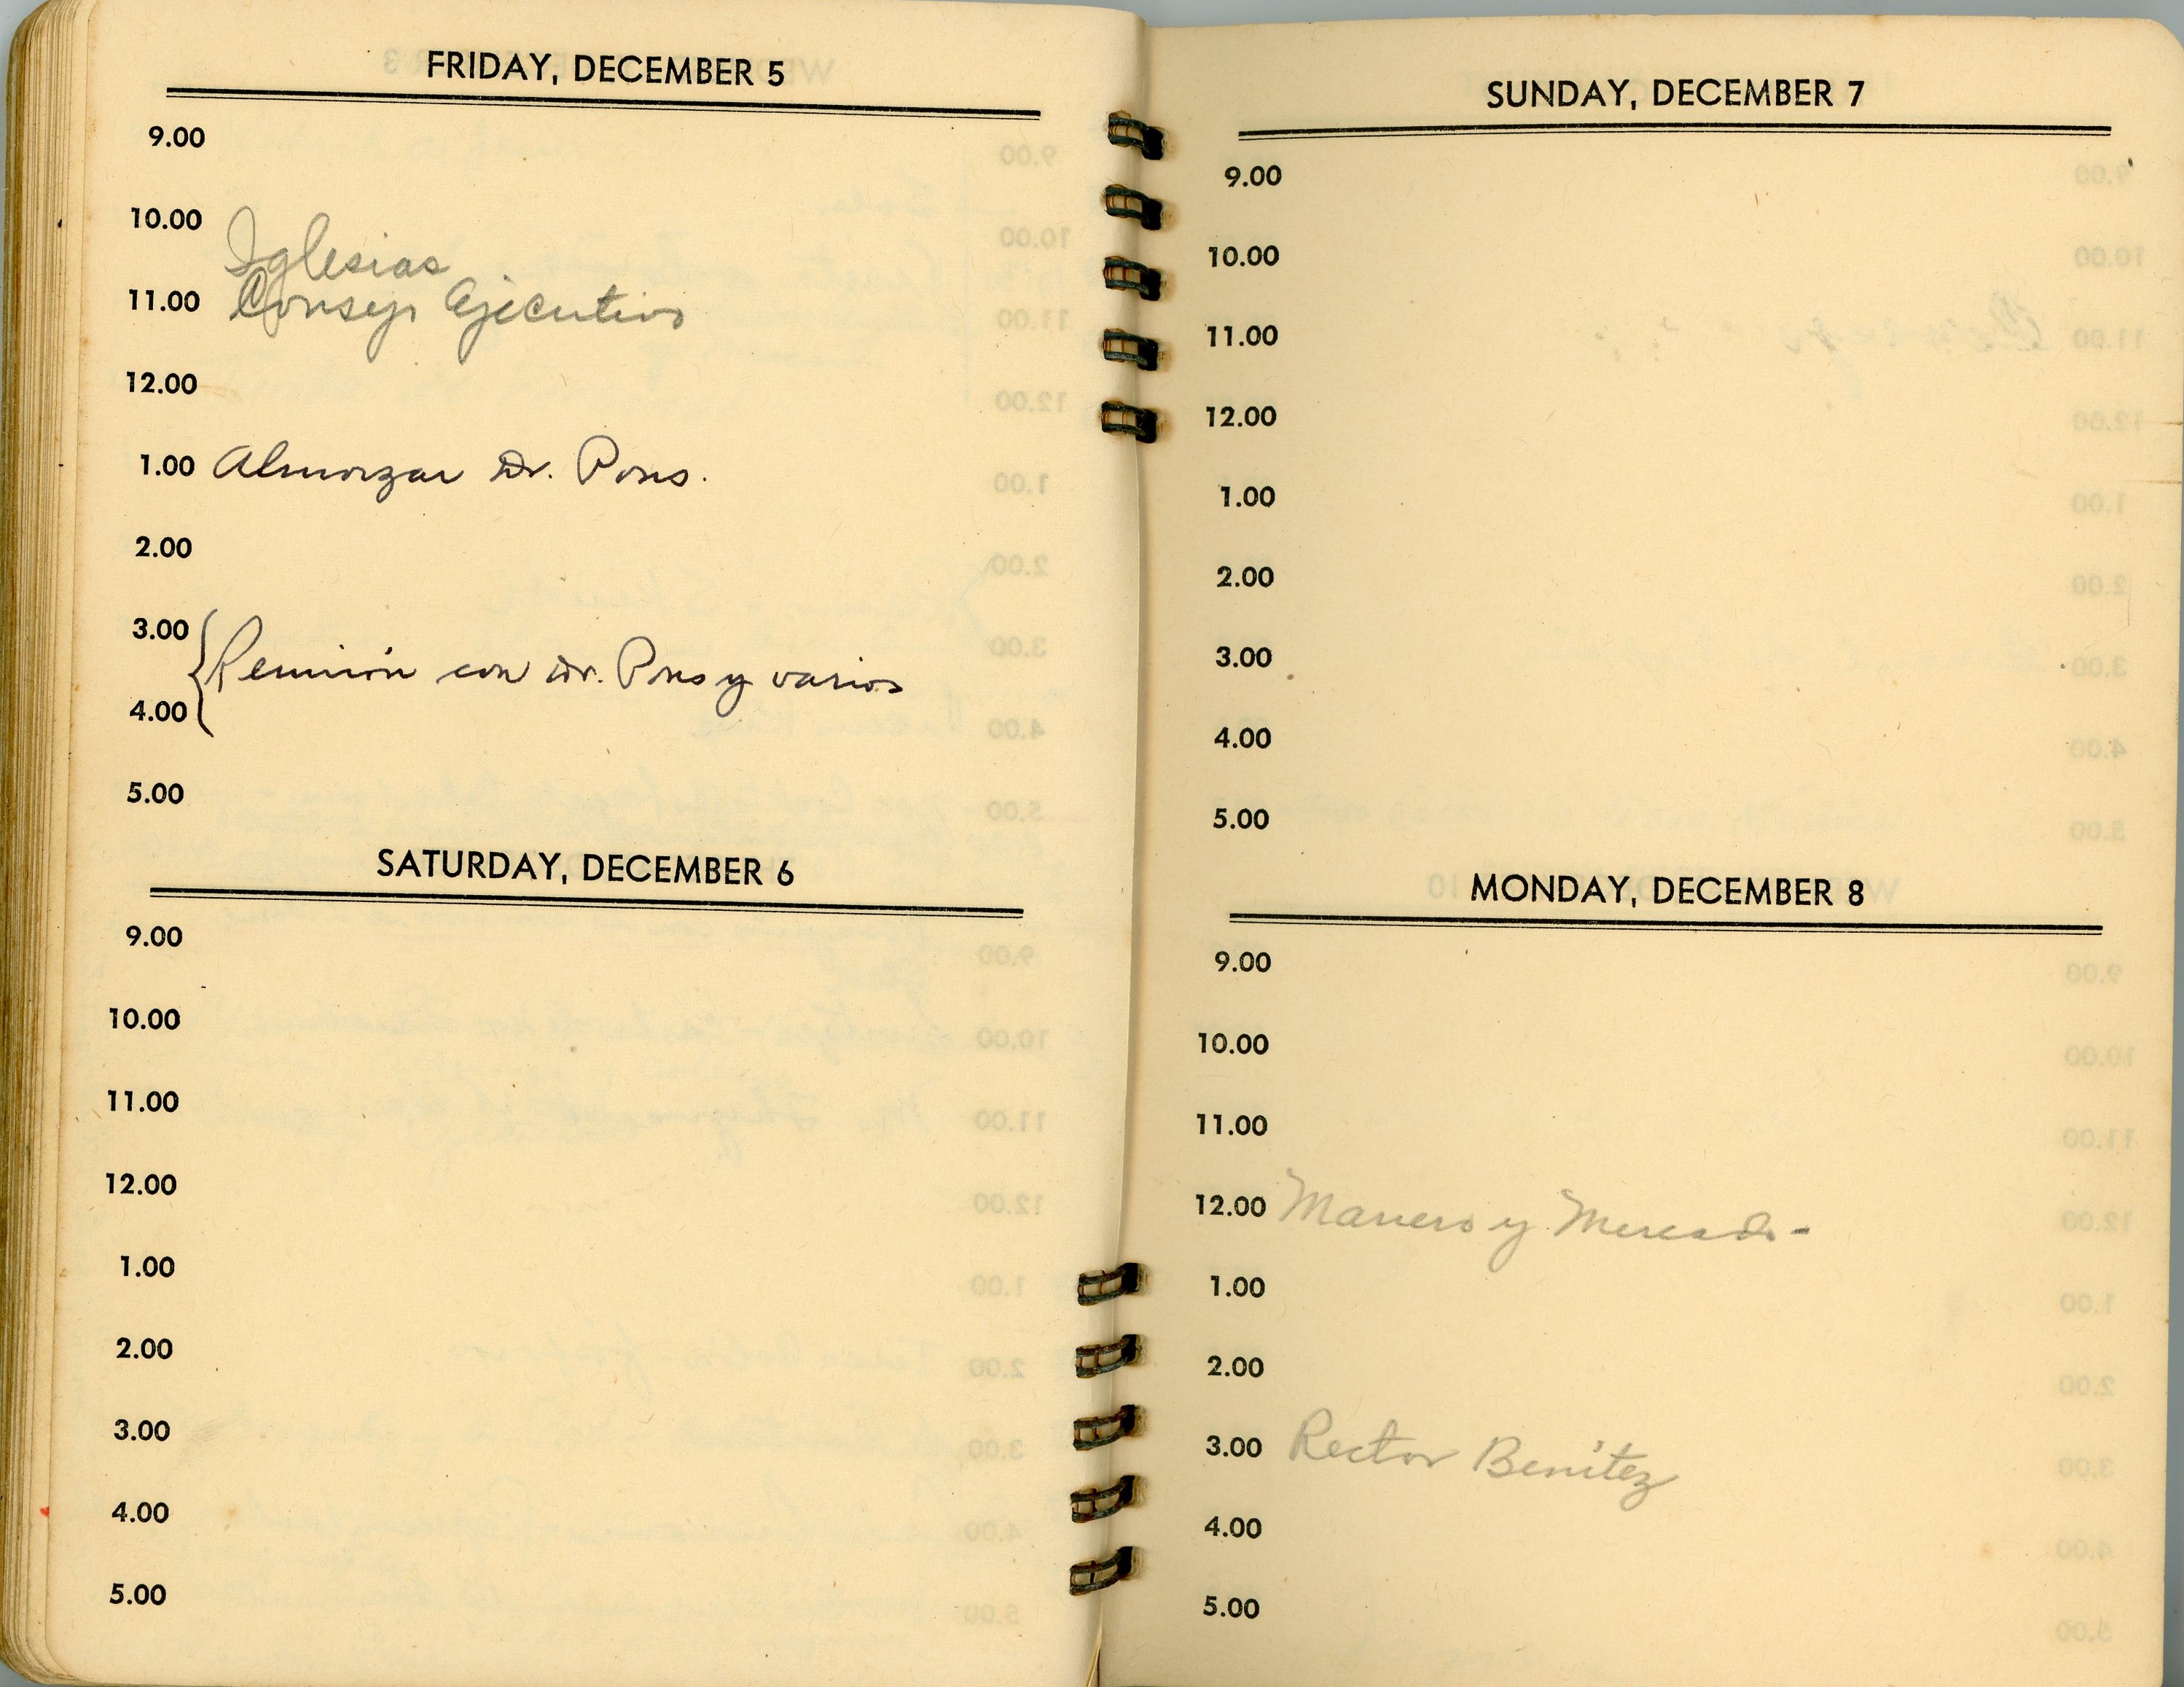 FRIDAY, DECEMBER 5
9.00
10.00
Iglesias
11.00 Consejo Ejecutivo
12.00
1.00 Almorzar Dr. Pons.
2.00
3.00
Reunión con Dr. Pons y varios
4.00
5.00
SATURDAY, DECEMBER 6
9.00
10.00
11.00
12.00
1.00
2.00
3.00
4.00
5.00
SUNDAY, DECEMBER 7
9.00
10.00
11.00
12.00
1.00
2.00
3.00
4.00
5.00
MONDAY, DECEMBER 8
9.00
10.00
11.00
12.00 y Mercado -
1.00
2.00
3.00 Rector Benítez
4.00
5.00